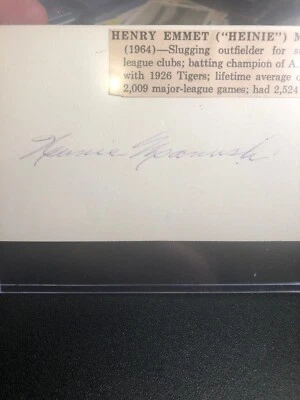 HENRY EMMET ("HEINIE") M
(1964)—Slugging outfielder for s
league clubs; batting champion of A.
with 1926 Tigers; lifetime average o
2,009 major-league games; had 2,524
Heinie Manush